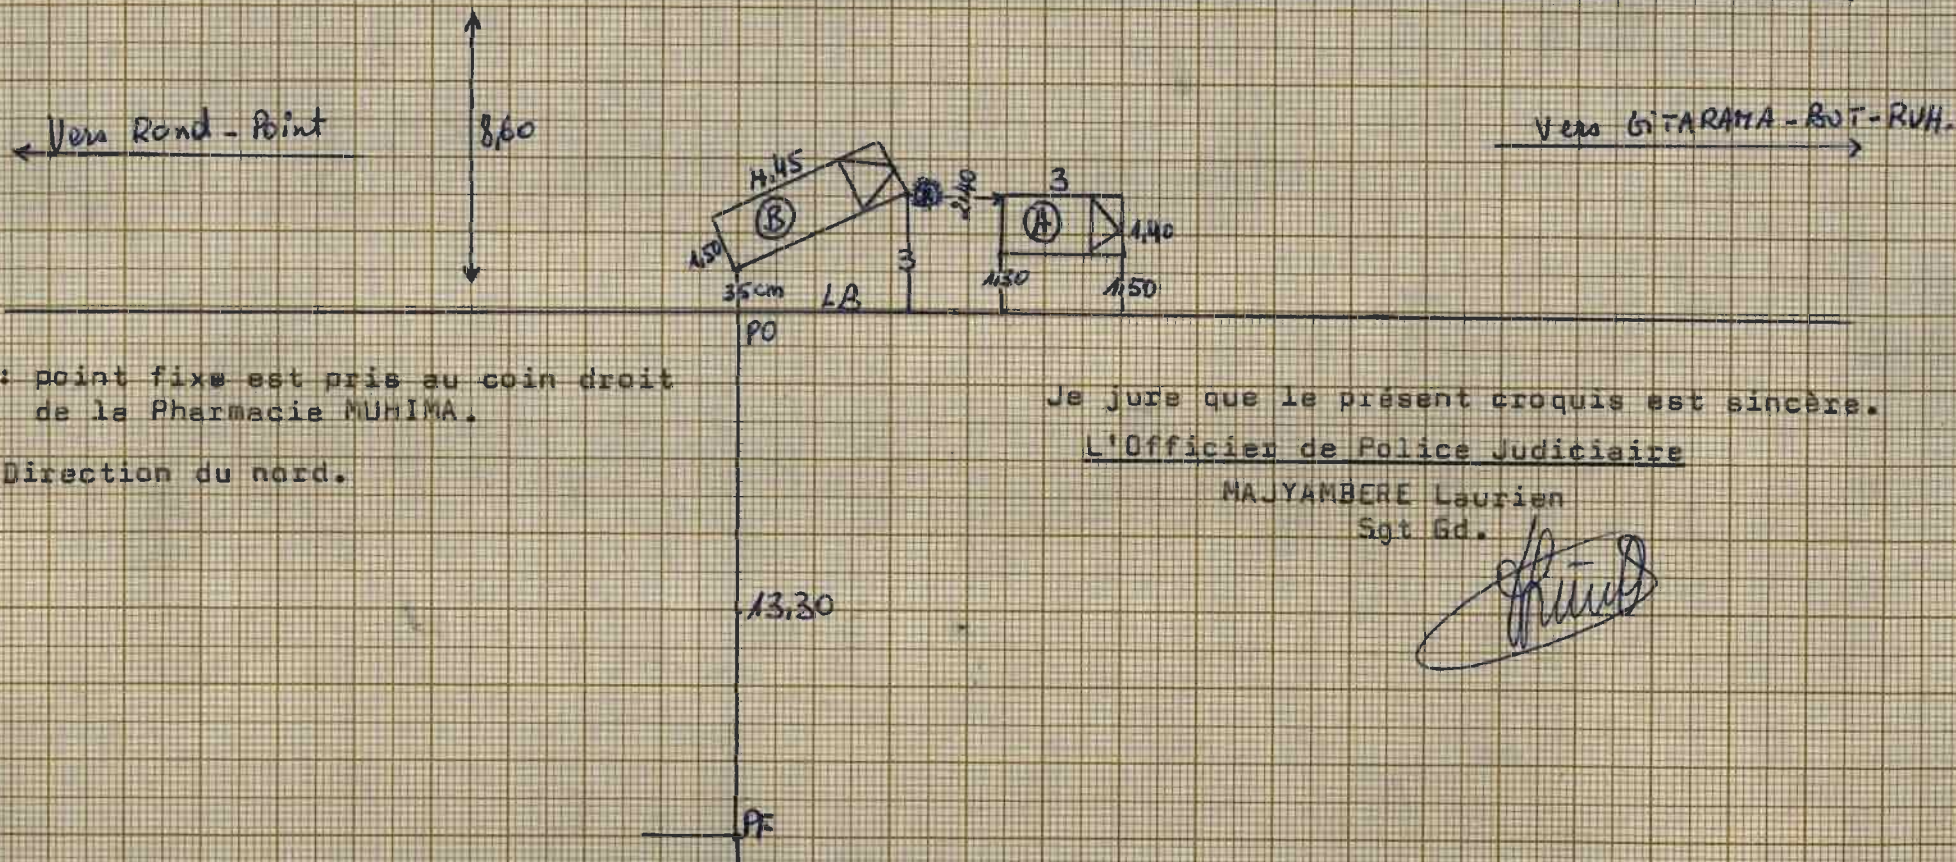 Vers Rond-Point
8,60
Vers GITARAMA-BUT-RUH.
4,45
B
1,50
35cm
LB
3
2,40
3
A
1,40
1,30
1,50
PO
: point fixe est pris au coin droit
de la Pharmacie MUHIMA.
Direction du nord.
Je jure que le présent croquis est sincère.
L'Officier de Police Judiciaire
MAJYAMBERE Laurien
Sgt Gd.
13,30
PF